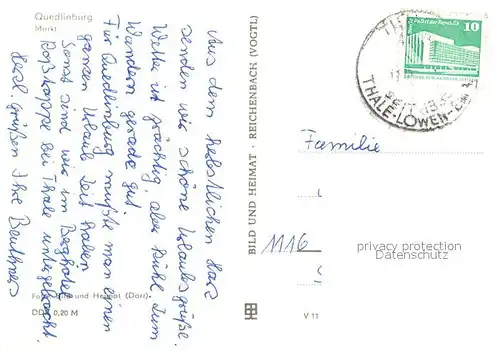 Quedlinburg
Markt
Aus dem herbstlichen Harz
senden wir schöne Urlaubsgrüße.
Wetter ist prächtig, aber kühl zum
Wandern gerade gut.
Für Quedlinburg müßte man einen
ganzen Urlaub Zeit haben.
Sonst sind wir im Berghotel
Roßtrappe bei Thale untergebracht.
Herzl. Grüßen Ihre
Foto: Bild und Heimat (Darr)
DDR 0,20 M
BILD UND HEIMAT · REICHENBACH (VOGTL)
V 11
10
Palast der Republik
THALE
Familie
1116
privacy protection
Datenschutz